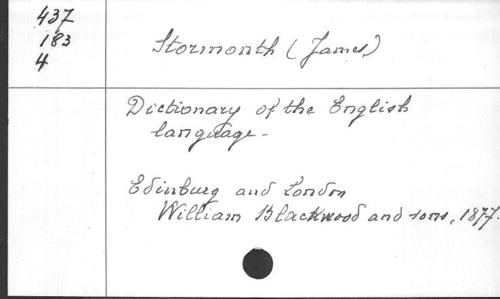 437
183
4
Stormonth (James)
Dictionary of the English
language -
Edinburg and London
William Blackwood and sons, 1877.